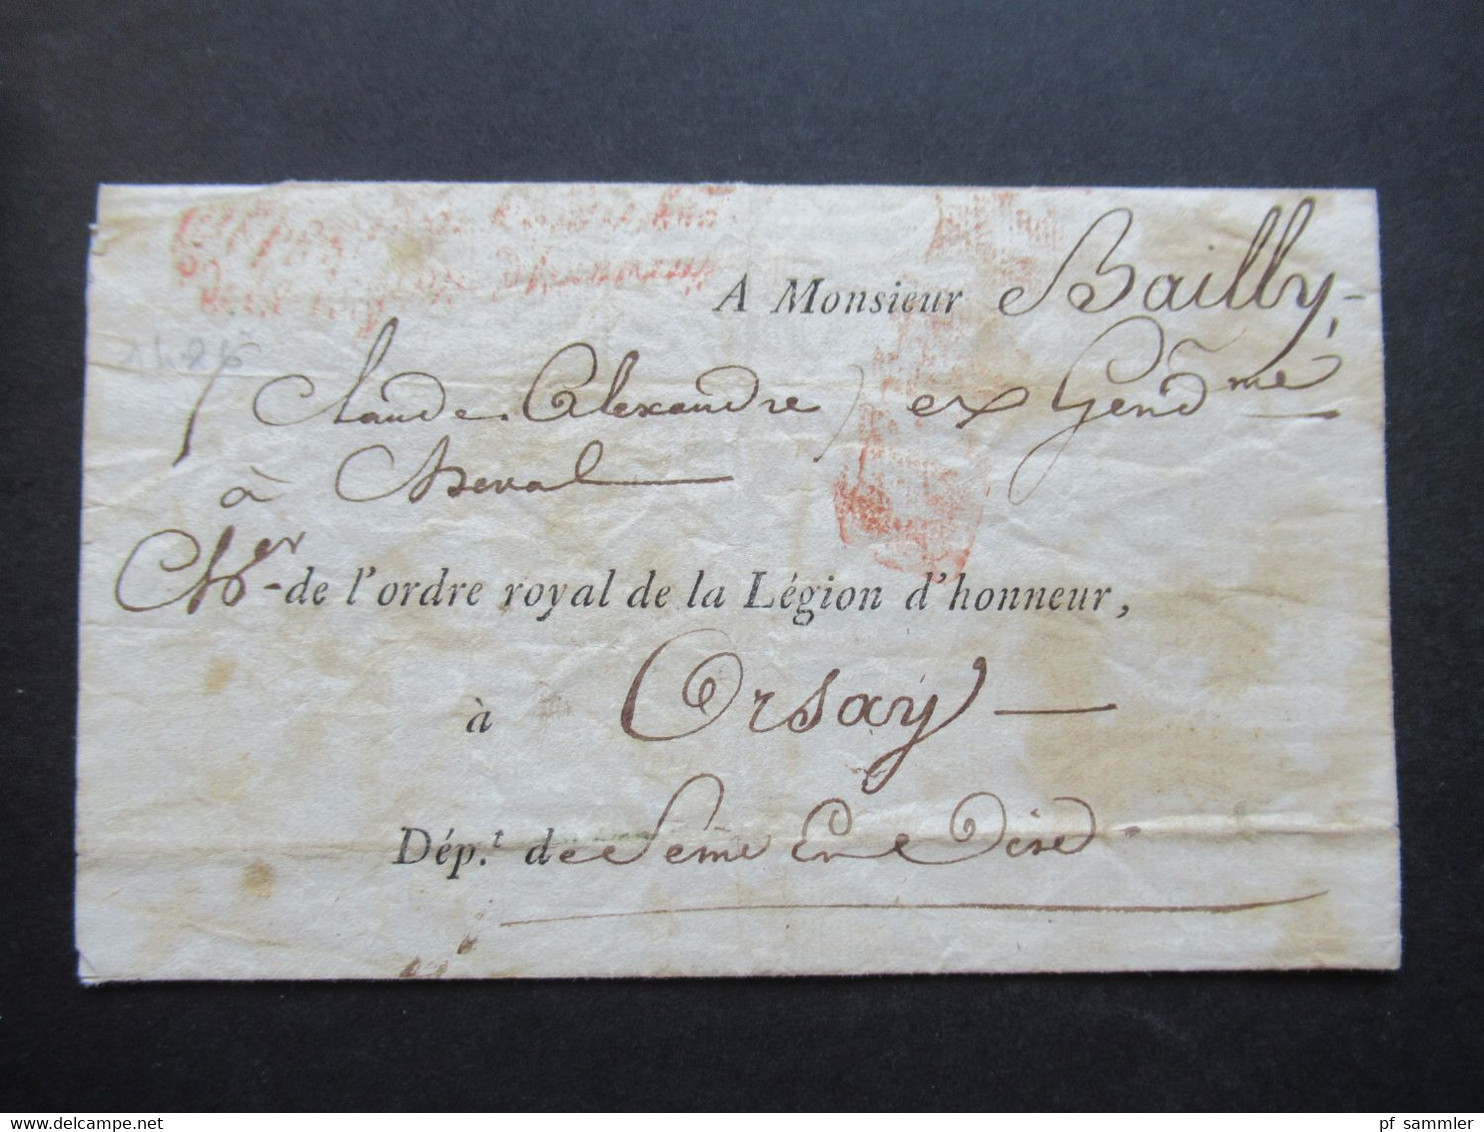 A Monsieur Bailly,
Claude Alexandre) ex Gend̃me
à Cheval
Cher de l'ordre royal de la Légion d'honneur,
à Orsay
Dép.t de Seine En Oise
pf sammler